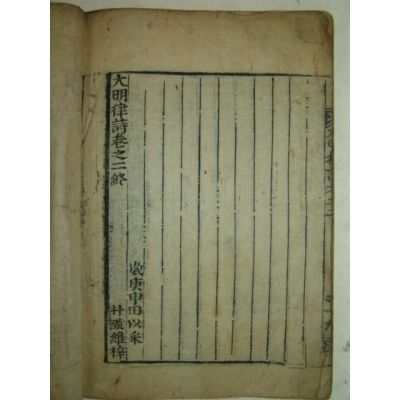 大明律詩卷之二終
歲庚申田以采
維梓